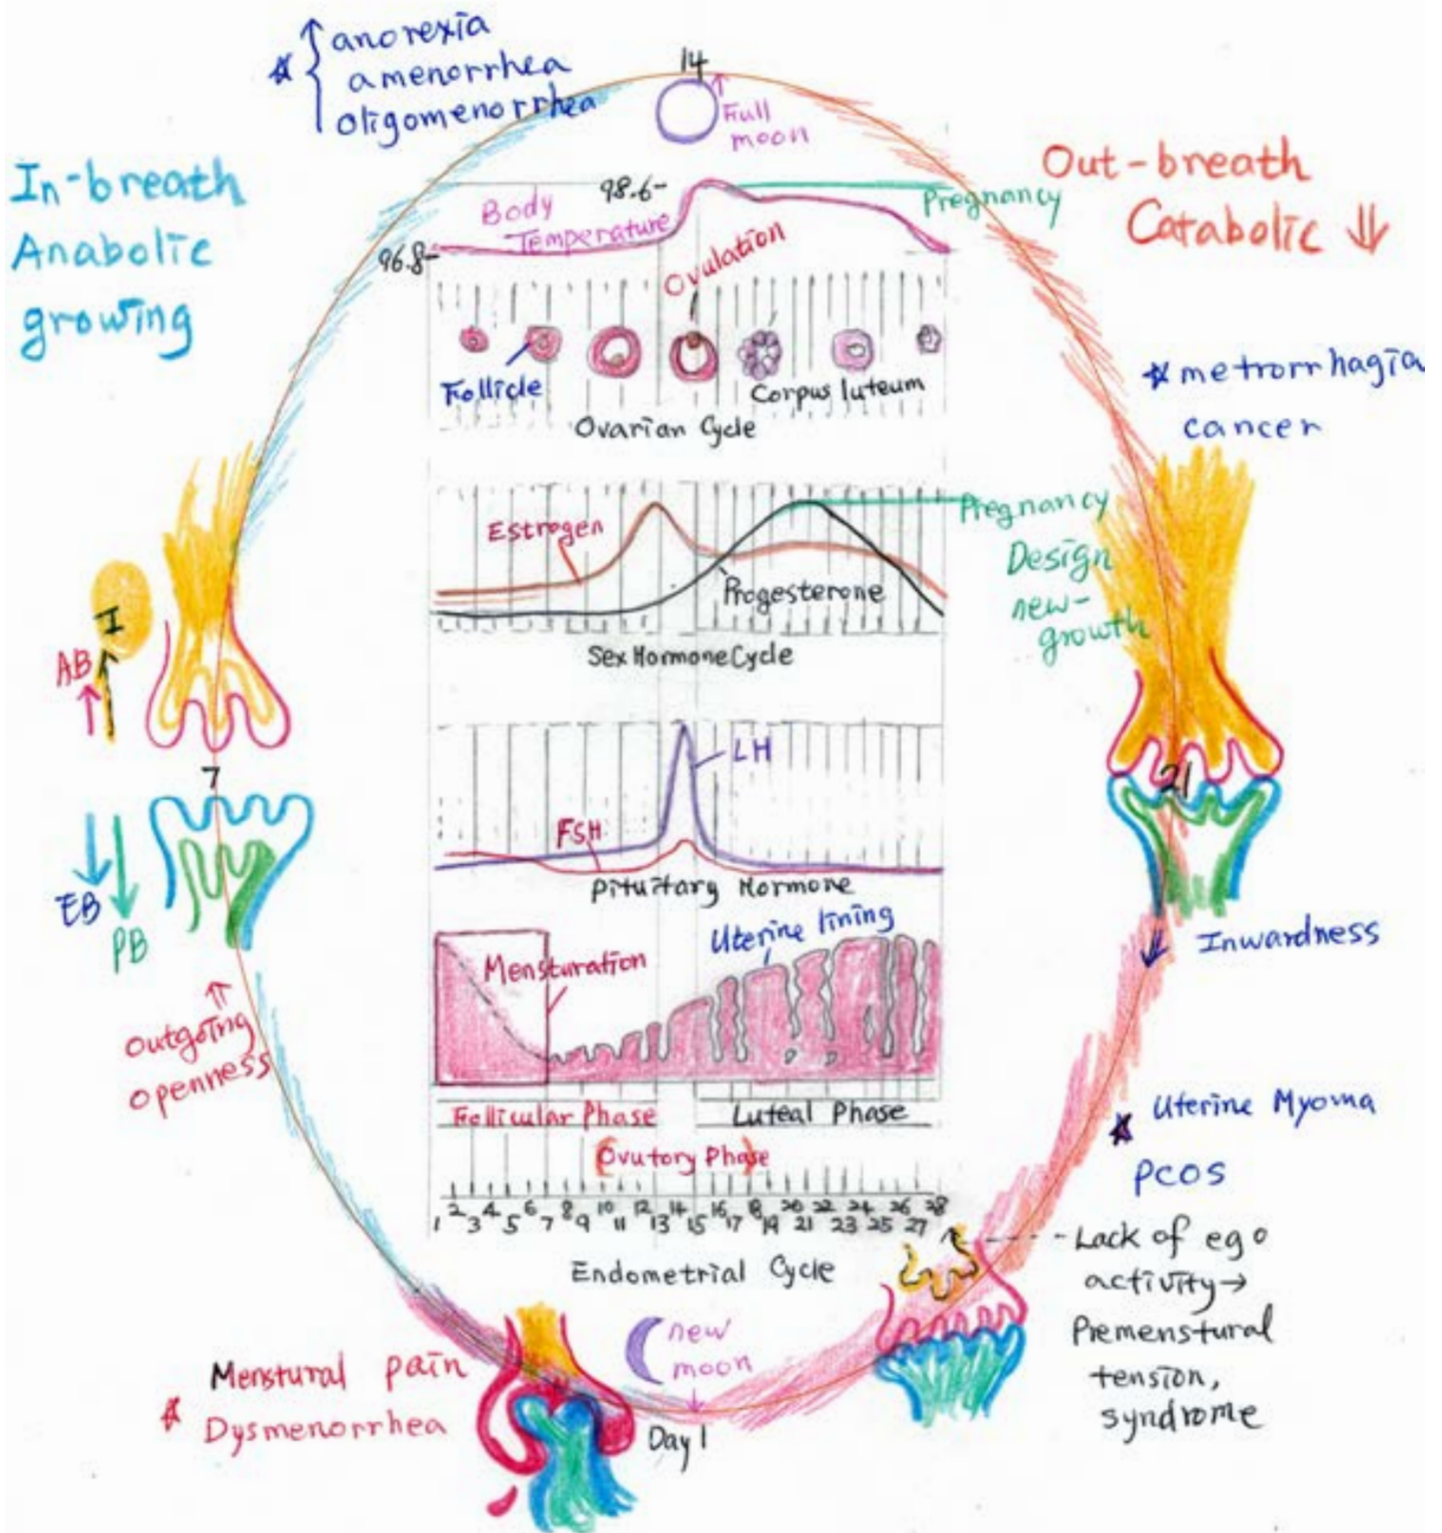 anorexia
amenorrhea
oligomenorrhea
14
Full
moon
In-breath
Anabolic
growing
Out-breath
Catabolic
98.6-
Body
Temperature
96.8-
Pregnancy
Ovulation
Follicle
Corpus luteum
Ovarian Cycle
metrorrhagia
cancer
Estrogen
Progesterone
Pregnancy
Design
new-
growth
Sex Hormone Cycle
I
AB
7
21
LH
FSH
Pituitary Hormone
EB
PB
Outgoing
openness
Inwardness
Mensturation
Uterine lining
Follicular Phase
Luteal Phase
(Ovutory Phase)
1 2 3 4 5 6 7 8 9 10 11 12 13 14 15 16 17 18 19 20 21 22 23 24 25 26 27 28
Endometrial Cycle
Uterine Myoma
PCOS
Lack of ego
activity→
Premenstural
tension,
syndrome
Menstural pain
Dysmenorrhea
new
moon
Day 1